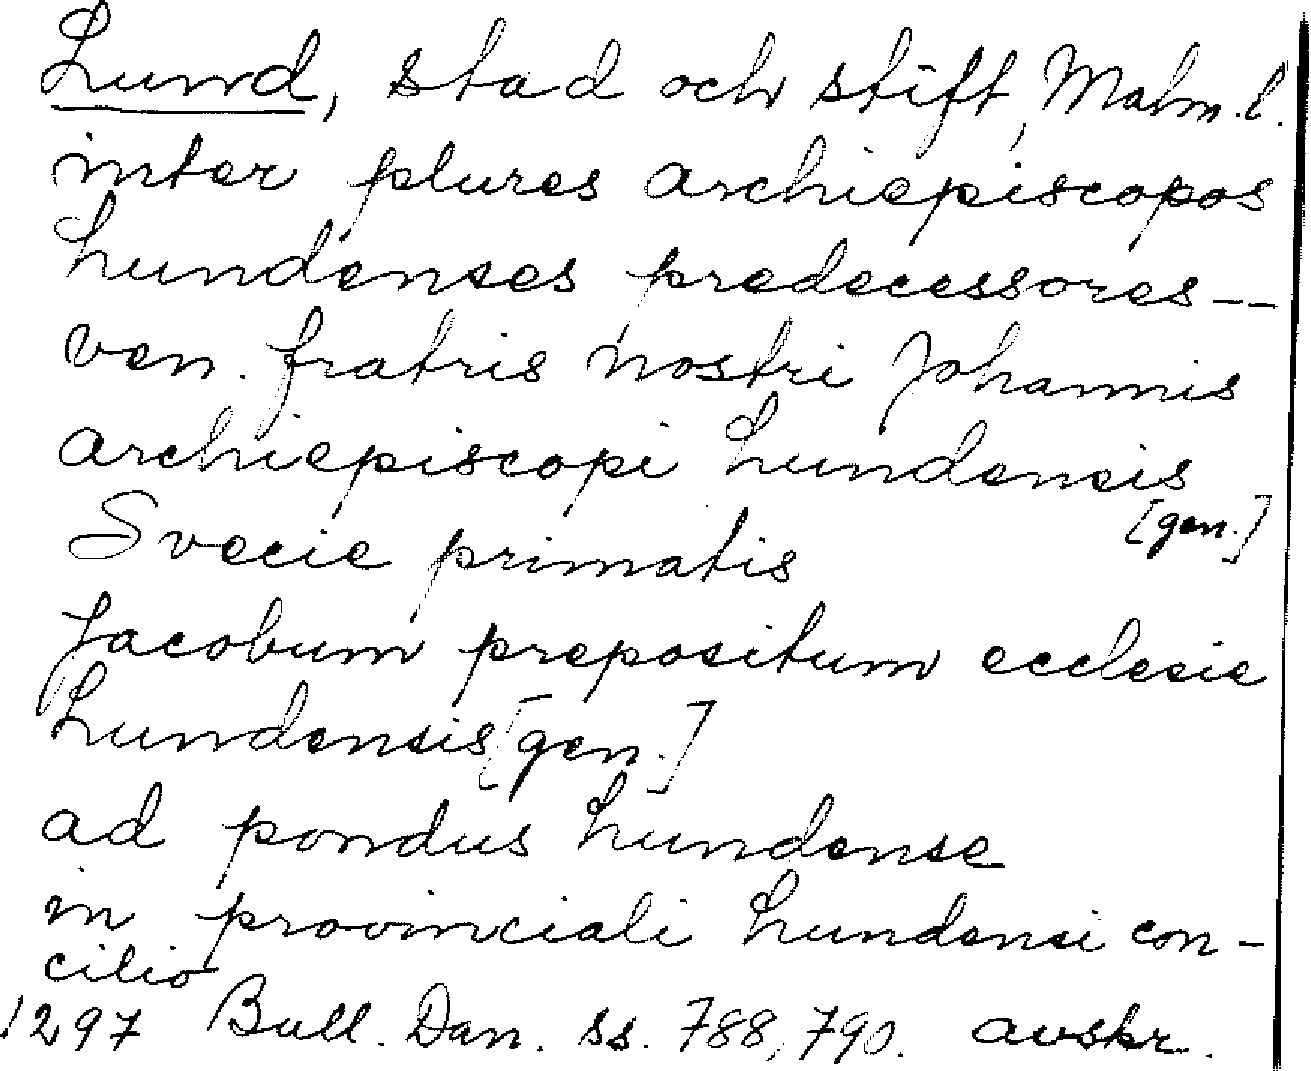 Lund, stad och stift, Malm.l.
inter plures archiepiscopos
Lundenses predecessores--
ven. fratris nostri Johannis
archiepiscopi Lundensis
[gen.]
Svecie primatis
Jacobum prepositum ecclesie
Lundensis [gen.]
ad pondus Lundense
in provinciali Lundensi con-
cilio
1297 Bull. Dan. ss. 788, 790. avskr.